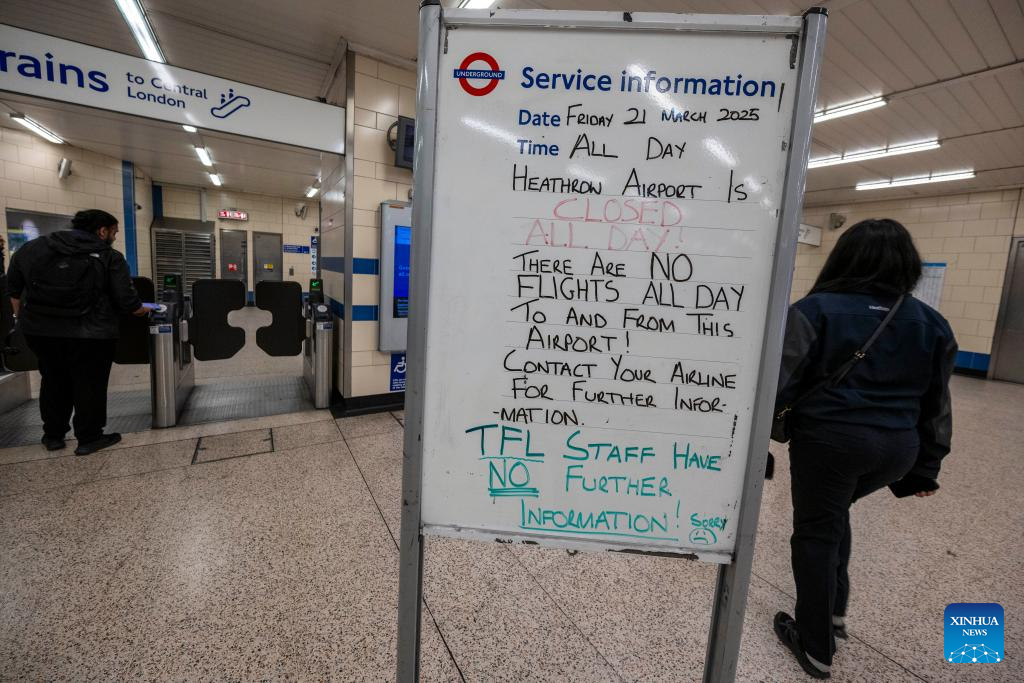 rains
to Central
London
UNDERGROUND
Service information
Date FRIDAY 21 MARCH 2025
Time ALL DAY
HEATHROW AIRPORT IS
CLOSED
ALL DAY!
THERE ARE NO
FLIGHTS ALL DAY
TO AND FROM THIS
AIRPORT!
CONTACT YOUR AIRLINE
FOR FURTHER INFOR-
-MATION.
TFL STAFF HAVE
NO FURTHER
INFORMATION! SORRY
XINHUA
NEWS